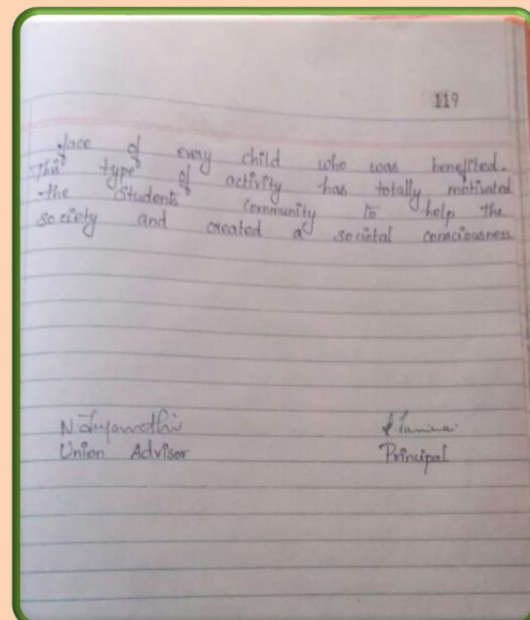 119
face of every child who was benefited.
This type of activity has totally motivated
the Students community to help the
society and created a societal consciousness
Union Advisor
Principal